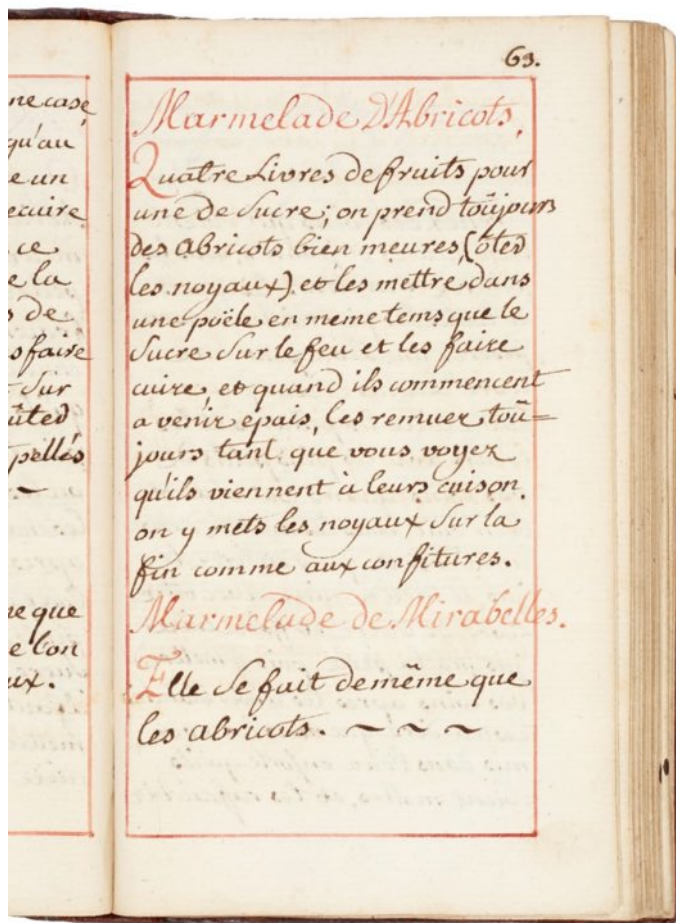 ne case
qu'au
e un
ecuire
ce
e la
s de
s faire
sur
ûted
pellés
~
ne que
e bon
ux.
63.
Marmelade D'Abricots,
Quatre Livres de fruits pour
une de Sucre; on prend toûjours
des abricots bien meures (ôtes
les noyaux) et les mettre dans
une poële en meme tems que le
Sucre Sur le feu et les faire
cuire, et quand ils commencent
a venir epais, les remuer toû=
jours tant que vous voyez
qu'ils viennent à leurs cuison.
on y mets les noyaux Sur la
fin comme aux confitures.
Marmelade de Mirabelles.
Elle Se fait de même que
les abricots. ~ ~ ~